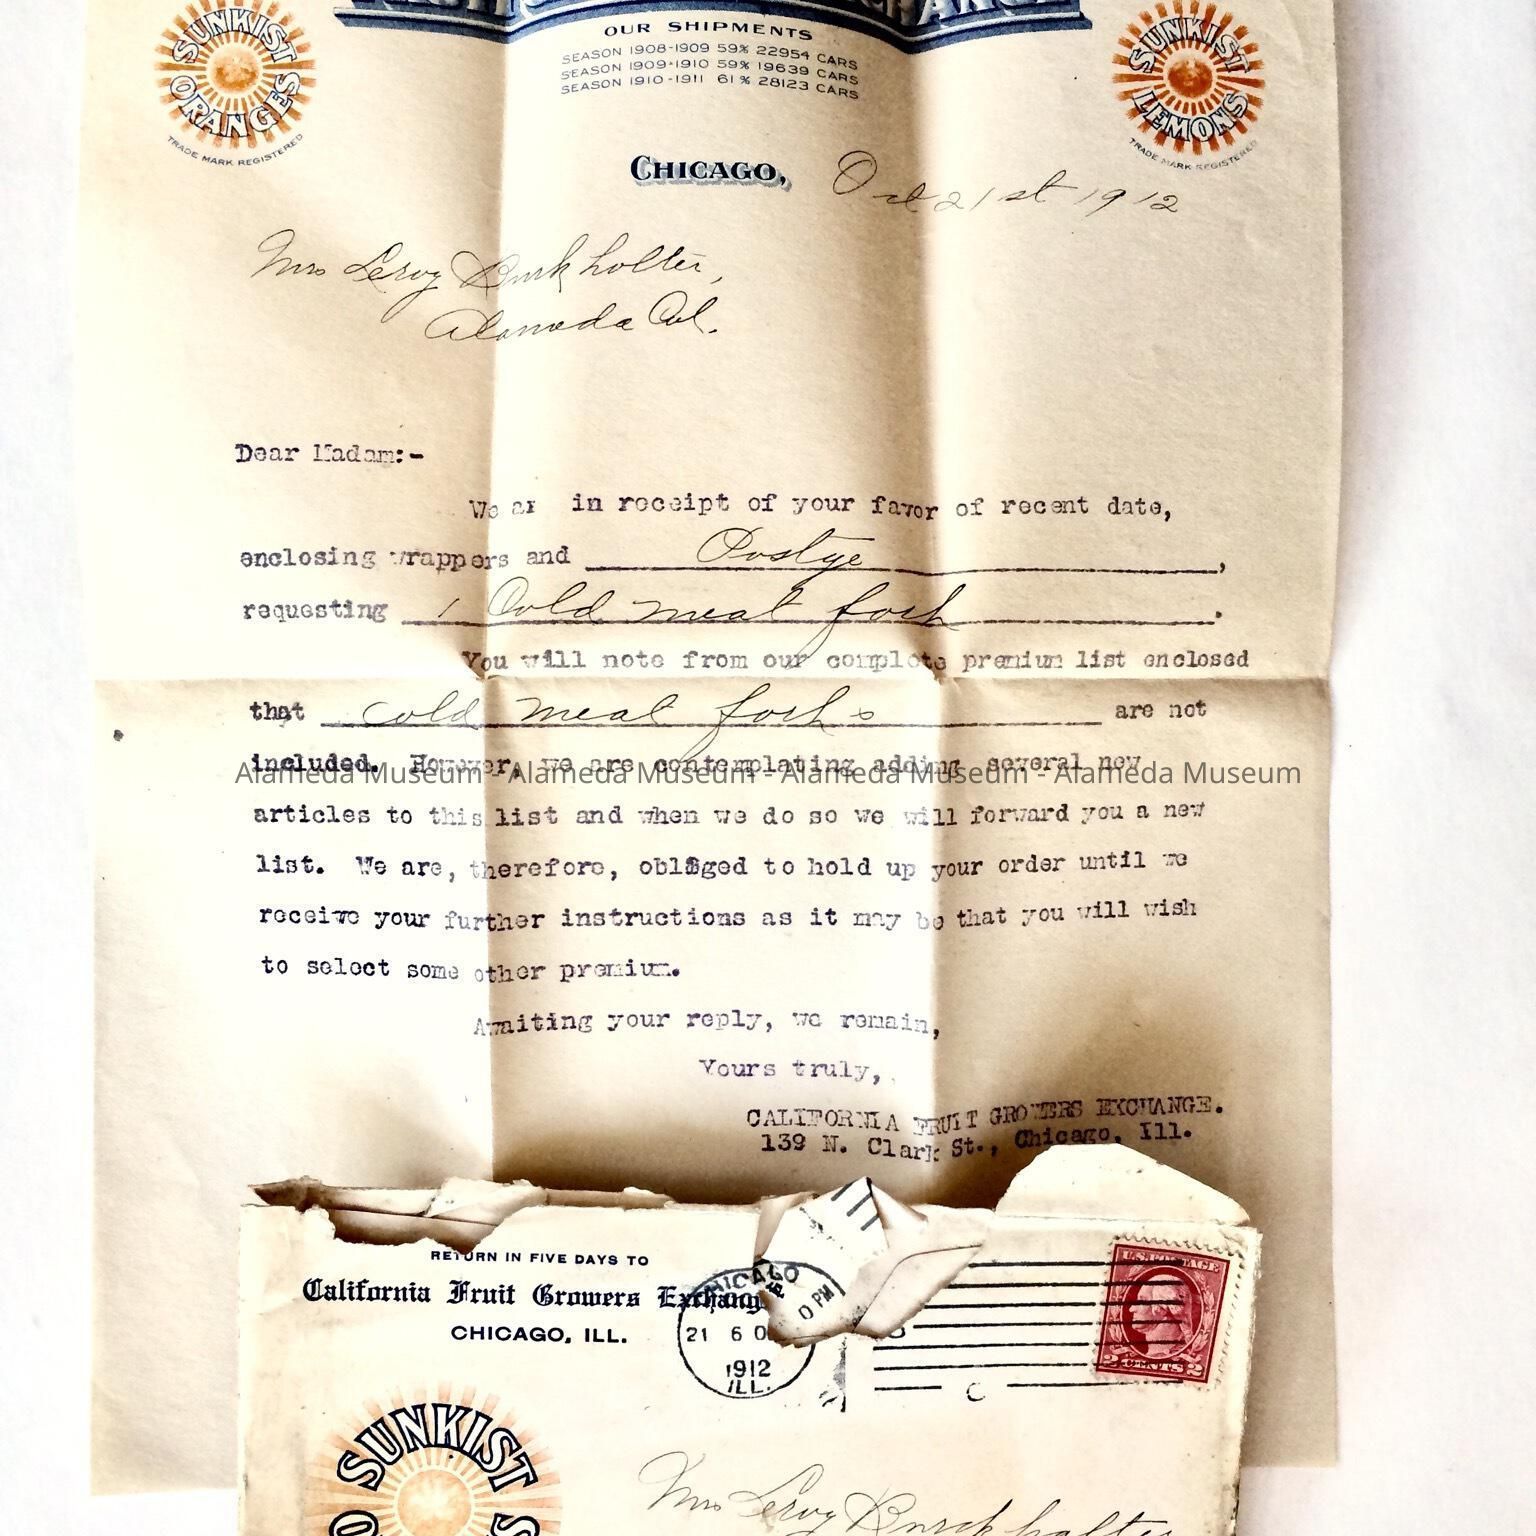 SUNKIST ORANGES
TRADE MARK REGISTERED
OUR SHIPMENTS
SEASON 1908-1909 59% 22954 CARS
SEASON 1909-1910 59% 19639 CARS
SEASON 1910-1911 61% 28123 CARS
SUNKIST LEMONS
TRADE MARK REGISTERED
CHICAGO, Oct 21st 1912
Mrs Leroy Burkholter,
Alameda Cal.
Dear Madam:-
We ar in receipt of your favor of recent date,
enclosing wrappers and Postge,
requesting 1 Cold meat fork.
You will note from our complete premium list enclosed
that cold meat forks are not
included. However, we are contemplating adding several new
Alameda Museum - Alameda Museum - Alameda Museum - Alameda Museum
articles to this list and when we do so we will forward you a new
list. We are, therefore, obliged to hold up your order until we
receive your further instructions as it may be that you will wish
to select some other premium.
Awaiting your reply, we remain,
Yours truly,
CALIFORNIA FRUIT GROWERS EXCHANGE.
139 N. Clark St., Chicago, Ill.
RETURN IN FIVE DAYS TO
California Fruit Growers Exchang
CHICAGO, ILL.
CHICAGO
0 PM
21 6
1912
ILL.
U.S. POSTAGE
2 CENTS 2
SUNKIST
Mrs Leroy Burckhalter